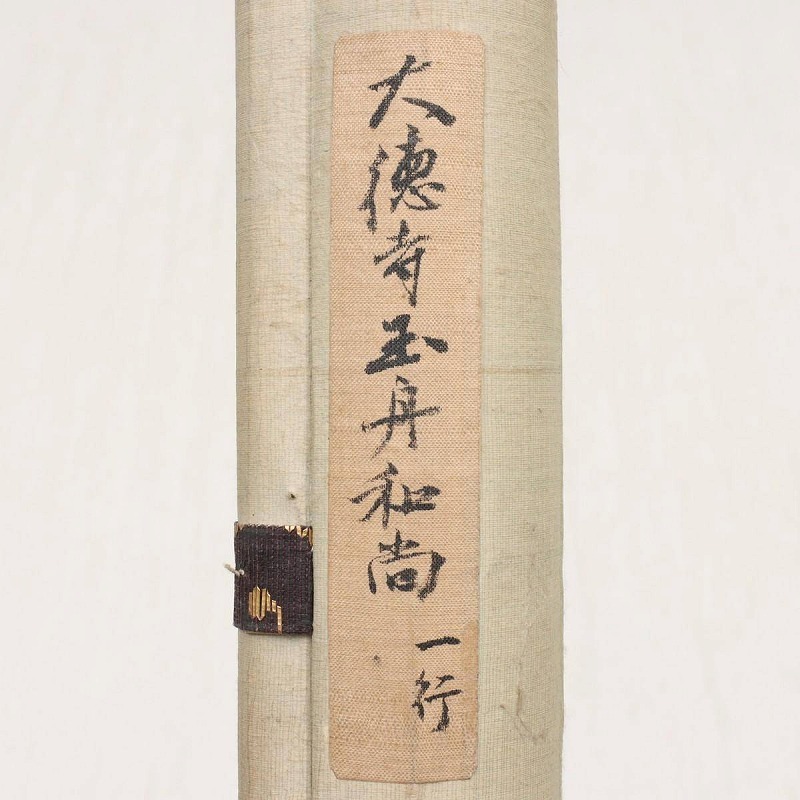 大徳寺玉舟和尚
一行